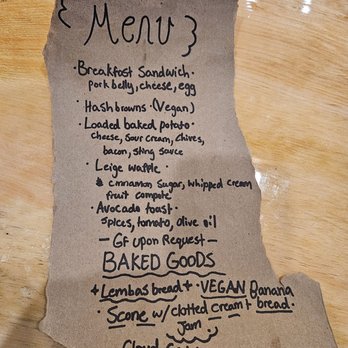 { Menu }
· Breakfast Sandwich ·
pork belly, cheese, egg
· Hashbrowns · (Vegan)
· Loaded baked potato ·
cheese, sour cream, chives,
bacon, sting sauce
· Leige waffle ·
cinnamon sugar, whipped cream
fruit compote
· Avocado toast ·
spices, tomato, olive oil
- GF upon Request -
BAKED GOODS
+ Lembas bread + · VEGAN Banana
bread ·
· Scone w/ clotted cream +
jam
Cloud